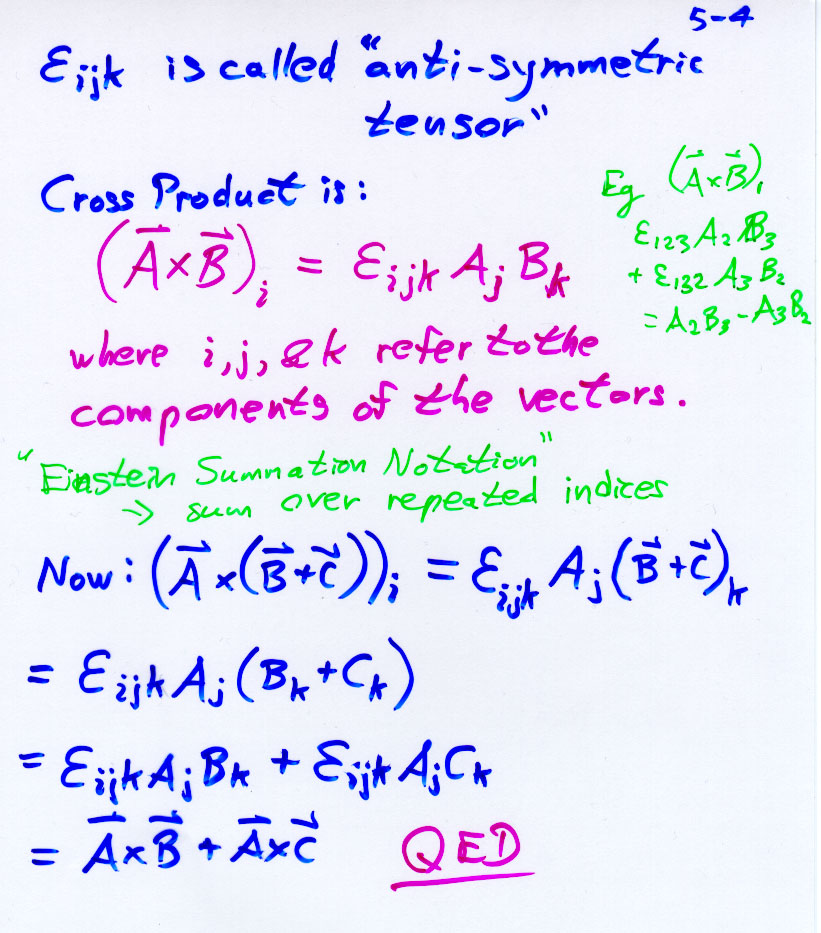 5-4
εijk is called "anti-symmetric
tensor"
Cross Product is:
(A⃗×B⃗)i = εijk Aj Bk
Eg (A⃗×B⃗)1
ε123 A2 B3
+ ε132 A3 B2
= A2B3 - A3B2
where i, j, & k refer to the
components of the vectors.
"Einstein Summation Notation"
→ sum over repeated indices
Now: (A⃗×(B⃗+C⃗))i = εijk Aj (B⃗+C⃗)k
= εijk Aj (Bk + Ck)
= εijk Aj Bk + εijk Aj Ck
= A⃗×B⃗ + A⃗×C⃗ QED